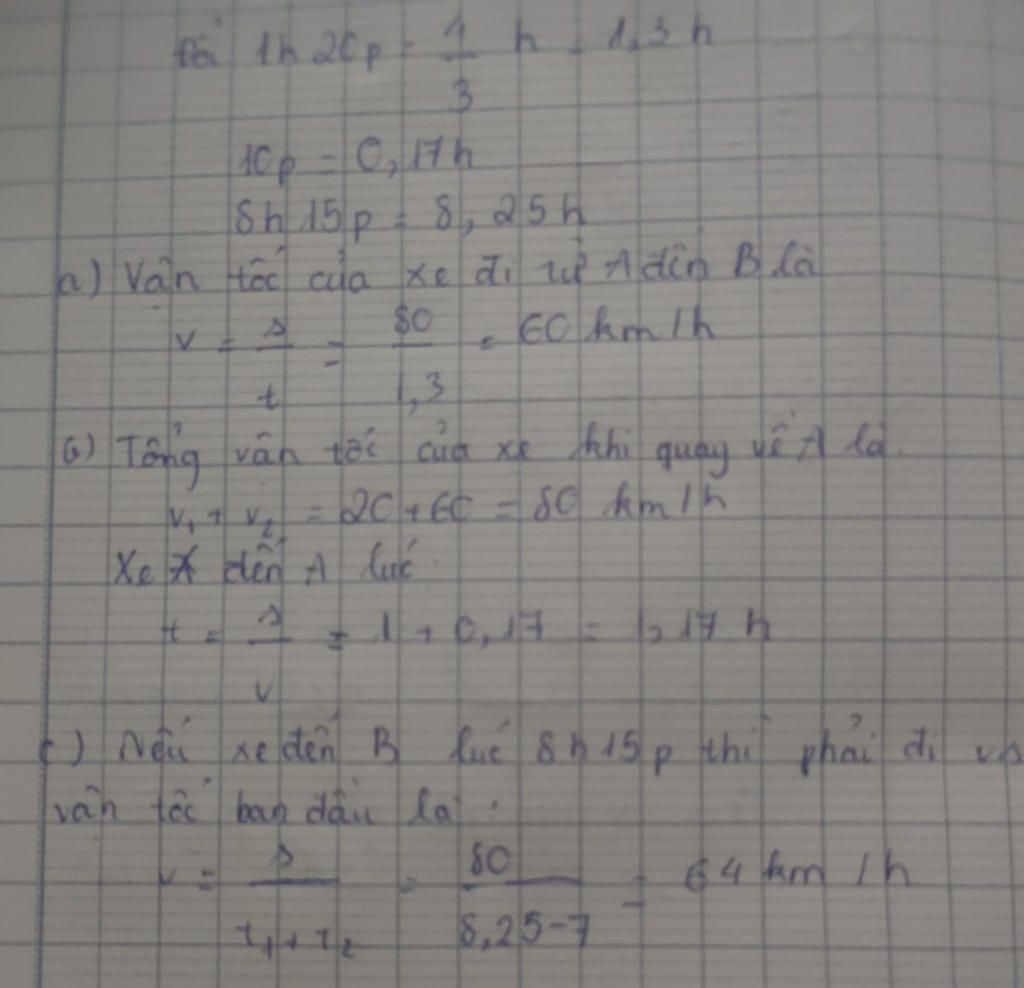 Đổi 1h 20p = 1/3 h = 1,3 h
10p = 0,17h
8h 15p = 8,25h
a) Vận tốc của xe đi từ A đến B là
v = s/t = 80/1,3 = 60 km/h
b) Tổng vận tốc của xe khi quay về A là
v1 + v2 = 20 + 60 = 80 km/h
Xe đến A lúc
t = s/v = 1 + 0,17 = 1,17 h
c) Nếu xe đến B lúc 8h15p thì phải đi
vận tốc ban đầu là :
v = s/t1+t2 = 80/8,25-7 = 64 km/h